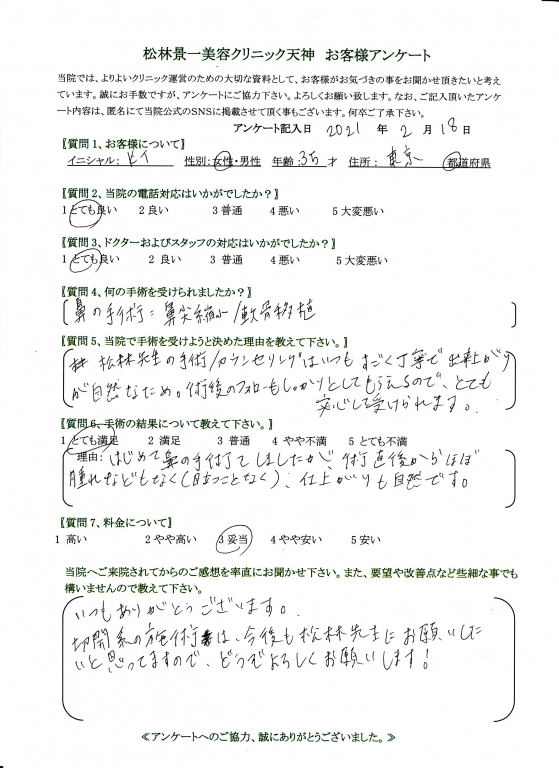 松林景一美容クリニック天神 お客様アンケート
当院では、よりよいクリニック運営のための大切な資料として、お客様がお気づきの事をお聞かせ頂きたいと考え
ています。誠にお手数ですが、アンケートにご協力下さい。よろしくお願い致します。なお、ご記入頂いたアンケ
ート内容は、匿名にて当院公式のSNSに掲載させて頂く事もございます。何卒ご了承下さい。
アンケート記入日 2021 年 2 月 18 日
【質問1、お客様について】
イニシャル: 性別:女性・男性 年齢:35 才 住所: 東京 都道府県
【質問2、当院の電話対応はいかがでしたか?】
1 とても良い 2 良い 3 普通 4 悪い 5 大変悪い
【質問3、ドクターおよびスタッフの対応はいかがでしたか?】
1 とても良い 2 良い 3 普通 4 悪い 5 大変悪い
【質問4、何の手術を受けられましたか?】
鼻の手術: 鼻尖縮小/軟骨移植
【質問5、当院で手術を受けようと決めた理由を教えて下さい。】
松林先生の手術/カウンセリングはいつもすごく丁寧で出来上がり
が自然なため。術後のフォローもしっかりとしてもらえるので、とても
安心して受けられます。
【質問6、手術の結果について教えて下さい。】
1 とても満足 2 満足 3 普通 4 やや不満 5 とても不満
理由: はじめて鼻の手術をしましたが、術直後からほぼ
腫れなどもなく(目立つことなく)、仕上がりも自然です。
【質問7、料金について】
1 高い 2 やや高い 3 妥当 4 やや安い 5 安い
当院へご来院されてからのご感想を率直にお聞かせ下さい。また、要望や改善点など些細な事でも
構いませんので教えて下さい。
いつもありがとうございます。
切開系の施術は、今後も松林先生にお願いした
いと思ってますので、どうぞよろしくお願いします!
≪アンケートへのご協力、誠にありがとうございました。≫